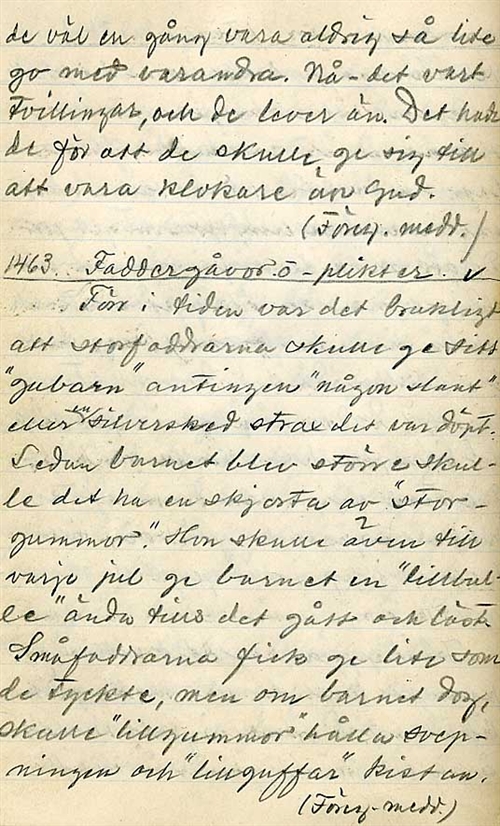 de väl en gång vara aldrig så lite
go med varandra. Nå - det vart
tvillingar, och de lever än. Det hade
de för att de skulle ge sig till
att vara klokare än Gud.
(Föreg. medd.)
1463. Faddergåvor o - plikter. ✓
Förr i tiden var det brukligt
att storfaddrarna skulle ge sitt
"gubarn" antingen "någon slant"
eller en silversked strax det var döpt.
Sedan barnet blev större skul-
le det ha en skjorta av "stor-
gummor". Hon skulle även till
varje jul ge barnet en "lillbul-
le" ända tills det gått och läst.
Småfaddrarna fick ge lite som
de tyckte, men om barnet dog,
skulle "lillgummor" hålla svep-
ningen och "lillguffar" kistan.
(Föreg. medd.)